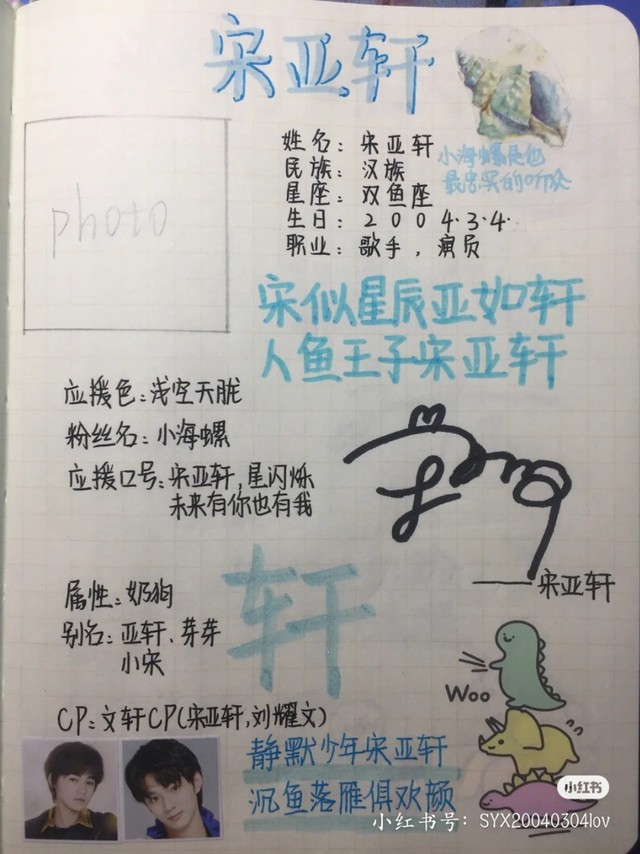 宋亚轩
姓名：宋亚轩
民族：汉族
星座：双鱼座
生日：2004.3.4.
职业：歌手，演员
小海螺是他
最忠实的听众
photo
宋似星辰亚如轩
人鱼王子宋亚轩
应援色：浅空天胧
粉丝名：小海螺
应援口号：宋亚轩，星闪烁
未来有你也有我
——宋亚轩
属性：奶狗
别名：亚轩、芽芽
小宋
轩
Woo
CP：文轩CP(宋亚轩，刘耀文)
静默少年宋亚轩
沉鱼落雁俱欢颜
小红书
小红书号：SYX20040304lov